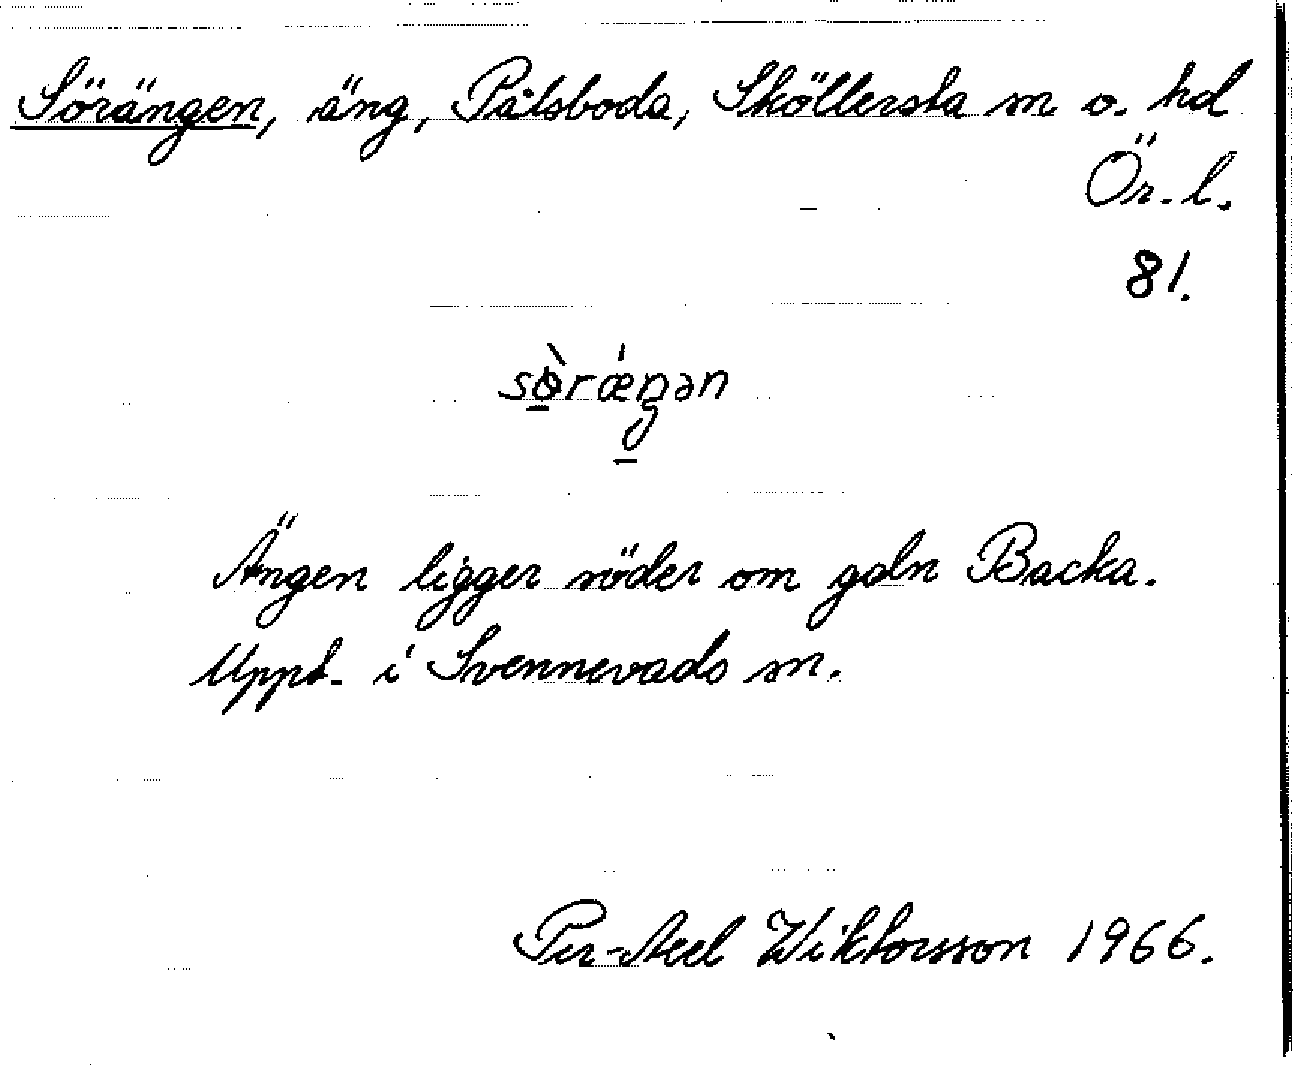 Sörängen, äng, Pålsboda, Sköllersta sn o. hd
Ör. l.
81.
sö̀rǽŋən
Ängen ligger söder om gdn Backa.
Uppt. i Svennevads sn.
Per-Axel Wiktorsson 1966.